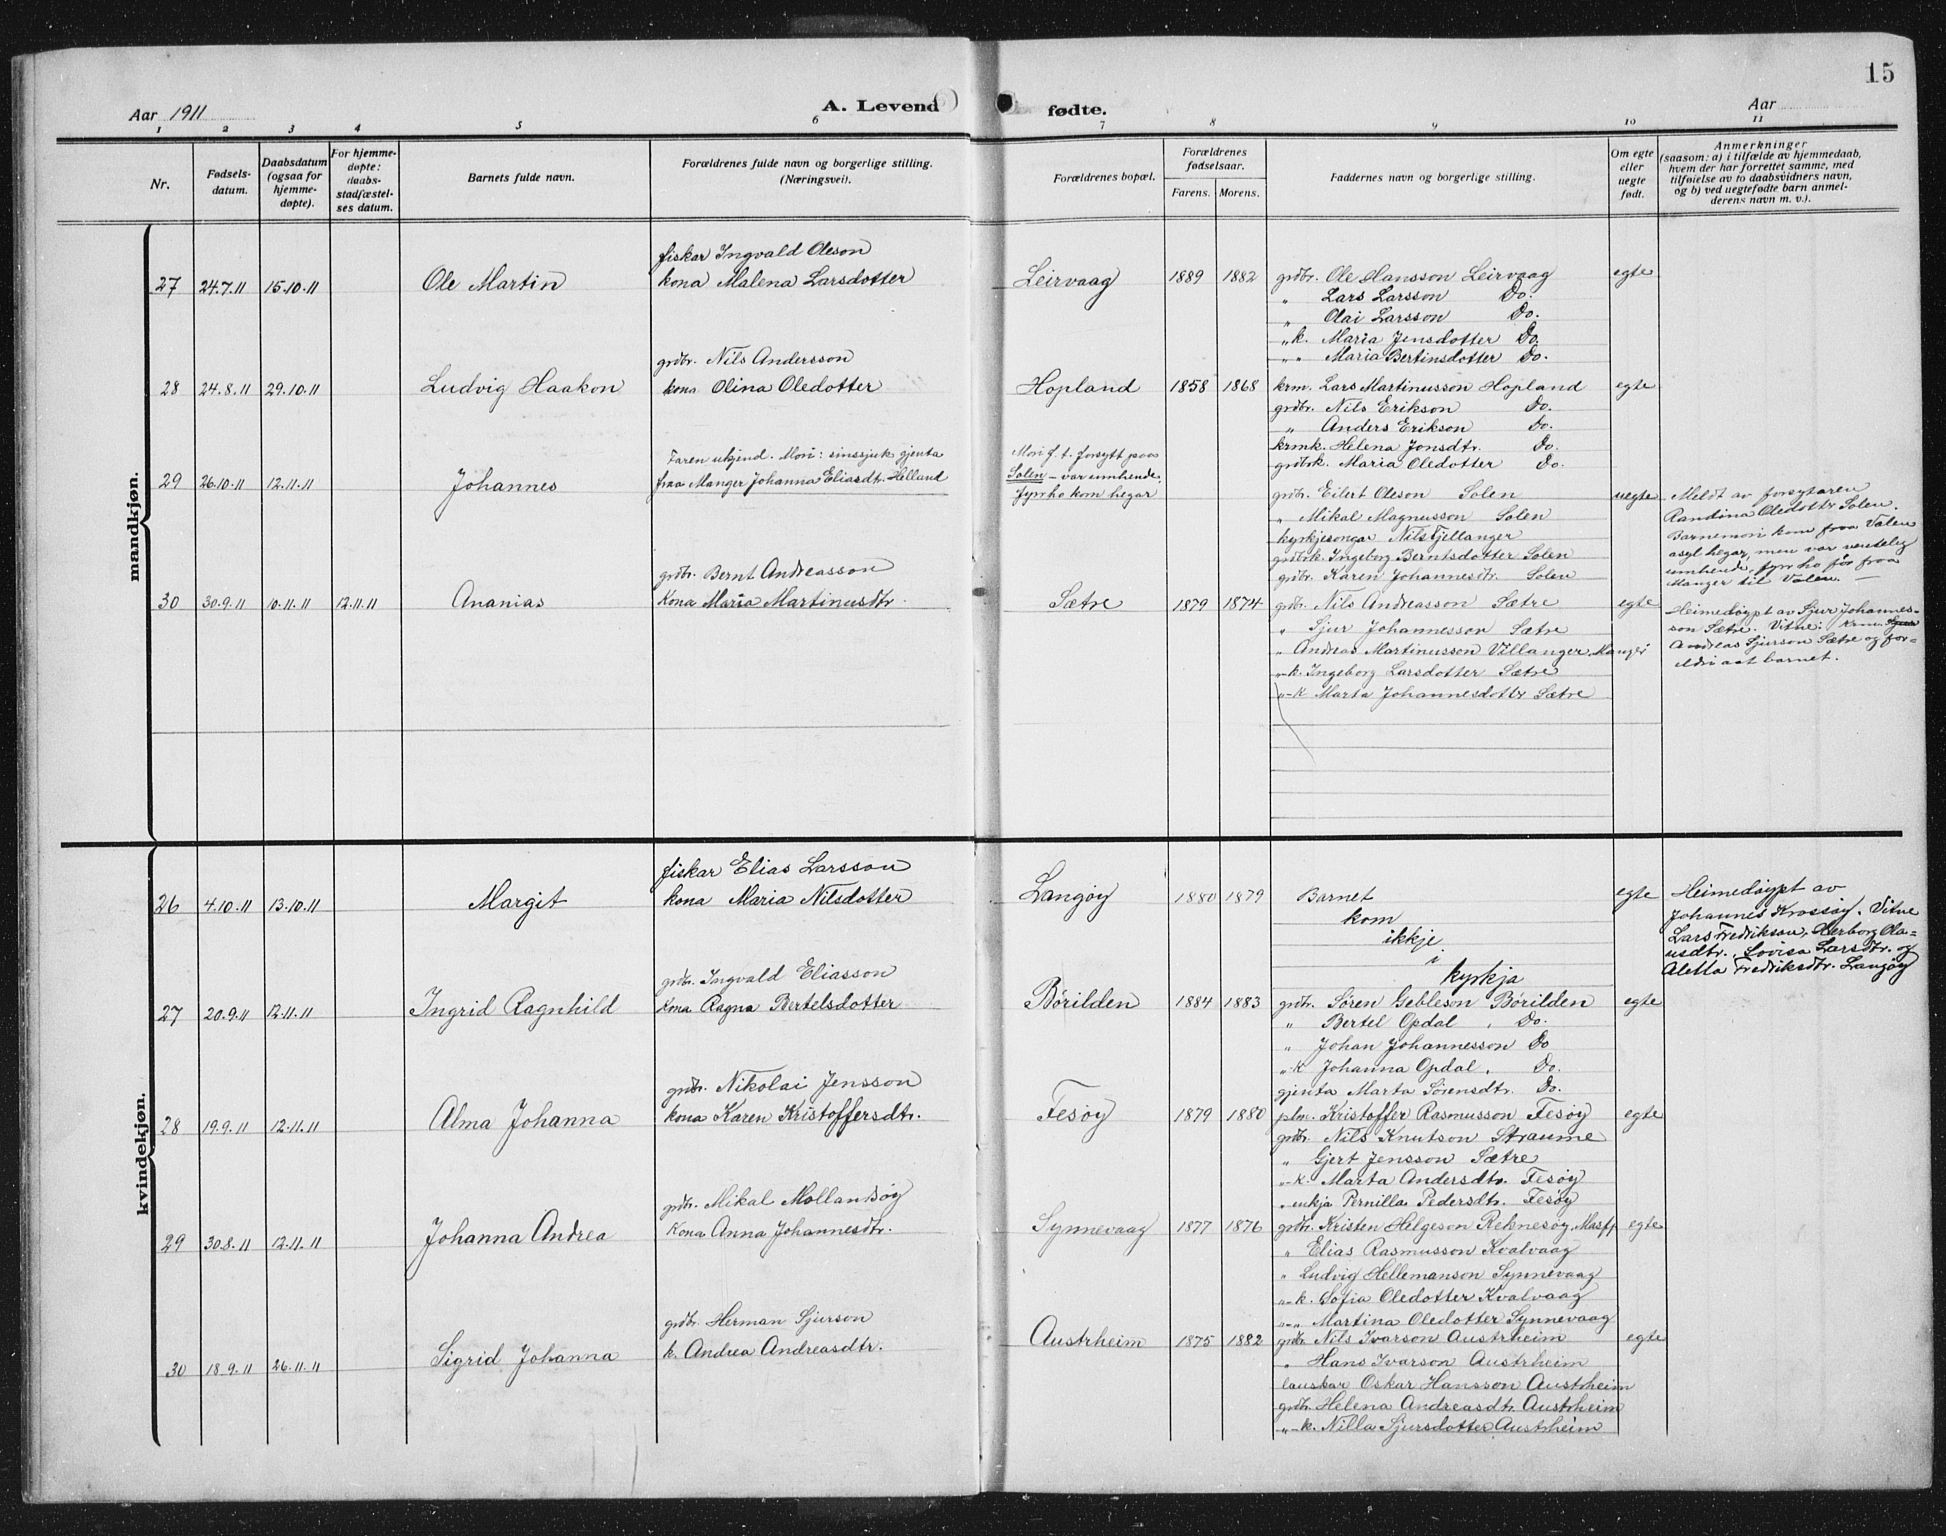 15
Aar 1911
A. Levend
fødte.
Aar
1 2 3 4 5 6 7 8 9 10 11
Nr.
Fødsels-
datum.
Daabsdatum
(ogsaa for
hjemme-
døpte).
For hjemme-
døpte:
daabs-
stadfæstel-
ses datum.
Barnets fulde navn.
Forældrenes fulde navn og borgerlige stilling.
(Næringsvei).
Forældrenes bopæl.
Forældrenes
fødselsaar.
Farens. Morens.
Faddernes navn og borgerlige stilling.
Om egte
eller
uegte
født.
Anmerkninger
(saasom: a) i tilfælde av hjemmedaab,
hvem der har forrettet samme, med
tilføielse av to daabsvidners navn,
og b) ved uegtefødte barn anmel-
derens navn m. v.).
mandkjøn.
fiskar Ingvald Oleson
27 24.7.11 15.10.11 Ole Martin kona Malena Larsdotter Leirvaag 1889 1882 grdbr. Ole Hansson Leirvaag egte
" Lars Larsson Do.
" Olai Larsson Do.
"k. Maria Jensdotter Do.
" " Maria Bertinsdotter Do.
grdbr. Nils Andersson
28 24.8.11 29.10.11 Ludvig Haakon kona Olina Oledotter Hopland 1858 1868 krm. Lars Martinusson Hopland egte
grdbr. Nils Erikson Do.
" Anders Erikson Do.
krmk. Helena Jonsdtr. Do.
grdbrk. Maria Oledotter Do.
Faren ukjend. Mori: sinssjuk gjenta
29 26.10.11 12.11.11 Johannes fraa Manger Johanna Eliasdtr. Helland
Mori f. t. forsytt paa
Solen - var umhende
fyrr ho kom hegar
grdbr. Eilert Oleson Solen uegte
" Mikal Magnusson Solen
kyrkjesongar Nils Fjellanger
grdbrk. Ingeborg Berntsdotter Solen
grdbr. Karen Johannesdtr. Solen
Meldt av forsytaren
Randina Oledottr Solen.
Barnemori kom fraa Valen
asyl hegar, men var venteleg
umhende, fyrr ho før fraa
Manger til Valen. —
grdbr. Bernt Andreasson
30 30.9.11 10.11.11 12.11.11 Ananias Kona Maria Martinusdtr. Sætre 1879 1874 grdbr. Nils Andreasson Sætre egte
" Sjur Johannesson Sætre
" Andreas Martinusson Villanger, Manger
"-k. Ingeborg Larsdotter Sætre
"-k Marta Johannesdottr Sætre
Heimedøypt av Sjur Johannes-
son Sætre. Vitne: Krm. Sjur
Andreas Sjurson Sætre og for-
eldri aat barnet.
kvindekjøn.
fiskar Elias Larsson
26 4.10.11 13.10.11 Margit kona Maria Nilsdotter Langøy 1880 1879 Barnet egte
kom
ikkje
i
kyrkja
Heimedøypt av
Johannes Krossøy. Vitne
Lars Fredrikson, Herborg Ola-
usdtr., Lovisa Larsdtr. og
Aletta Fredriksdtr. Langøy
grdbr. Ingvald Eliasson
27 20.9.11 12.11.11 Ingrid Ragnhild Kona Ragna Bertelsdotter Børilden 1884 1883 grdbr. Søren Gebleson Børilden egte
" Bertel Opdal Do.
" Johan Johannesson Do
"k Johanna Opdal. Do.
gjenta Marta Sørensdtr. Do.
grdbr. Nikolai Jensson
28 19.9.11 12.11.11 Alma Johanna kona Karen Kristoffersdtr. Fesøy 1879 1880 plm. Kristoffer Rasmusson Fesøy egte
grdbr. Nils Knutson Straume
" Gjert Jensson Sætre
"-k. Marta Andersdtr. Fesøy
" enkja Pernilla Pedersdtr. Fesøy
grdbr. Mikal Mollandsøy
29 30.8.11 12.11.11 Johanna Andrea Kona Anna Johannesdtr. Synnevaag 1877 1876 grdbr. Kristen Helgeson Reknesøy, Masfj. egte
" Elias Rasmusson Kvalvaag
" Ludvig Hellemanson Synnevaag
"-k. Sofia Oledotter Kvalvaag
"-" Martina Oledotter Synnevaag
grdbr. Herman Sjurson
30 18.9.11 26.11.11 Sigrid Johanna k. Andrea Andreasdtr. Austrheim 1875 1882 grdbr. Nils Ivarson Austrheim egte
" Hans Ivarson Austrheim
lauskar Oskar Hansson Austrheim
grdbr. Helena Andreasdtr. Austrheim
"-k. Nilla Sjursdotter Austrheim